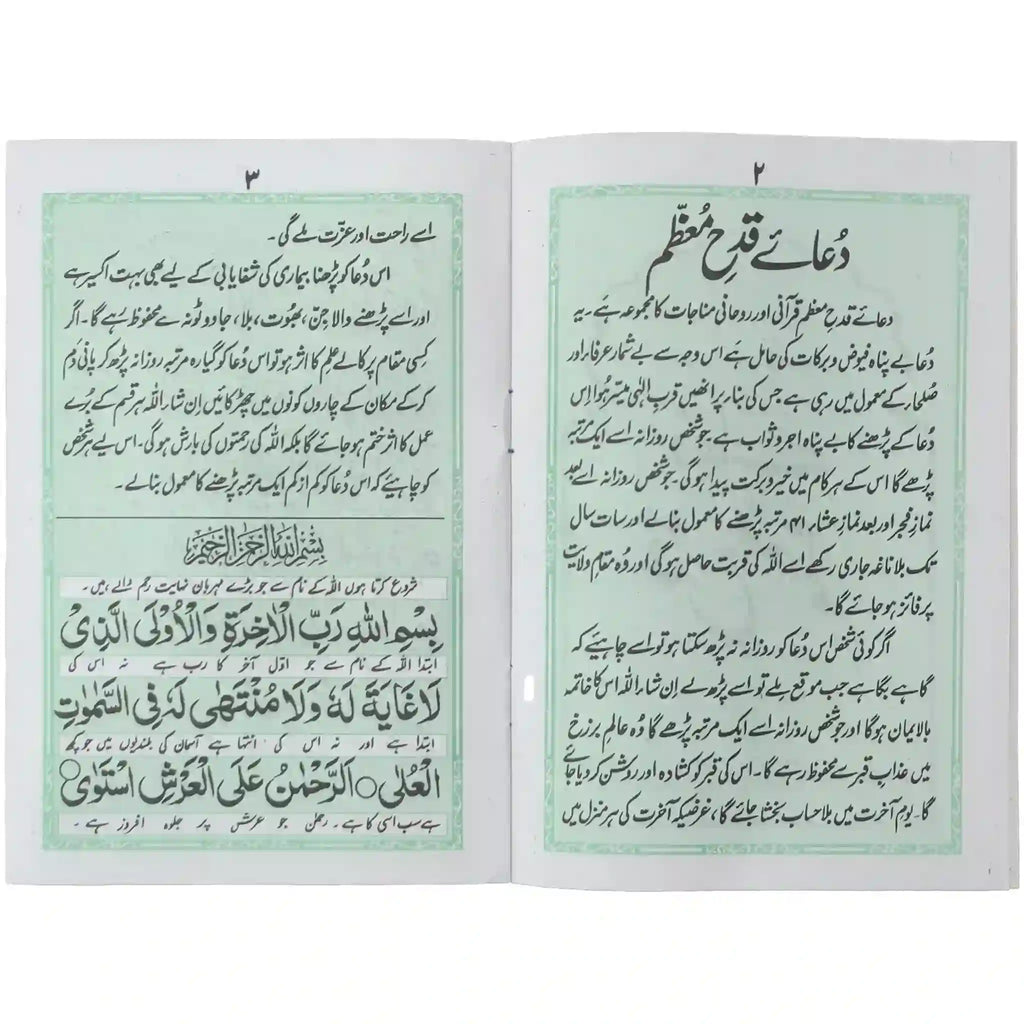 ۲
دُعائے قدحِ معُظّم
دعائے قدحِ معظم قرآنی اور روحانی مناجات کا مجموعہ ہے۔ یہ
دُعا بے پناہ فیوض و برکات کی حامل ہے اس وجہ سے بے شمار عرفاء اور
صُلحاء کے معمول میں رہی ہے جس کی بناء پر انھیں قربِ الٰہی میسّر ہوا اِس
دُعا کے پڑھنے کا بے پناہ اجر و ثواب ہے۔ جو شخص روزانہ اسے ایک مرتبہ
پڑھے گا اس کے ہر کام میں خیر و برکت پیدا ہو گی۔ جو شخص روزانہ اسے بعد
نمازِ فجر اور بعد نمازِ عشاء ۴۱ مرتبہ پڑھنے کا معمول بنا لے اور سات سال
تک بلا ناغہ جاری رکھے اسے اللہ کی قربت حاصل ہو گی اور وُہ مقامِ ولایت
پر فائز ہو جائے گا۔
اگر کوئی شخص اس دُعا کو روزانہ نہ پڑھ سکتا ہو تو اسے چاہیئے کہ
گاہے بگاہے جب موقع ملے تو اسے پڑھ لے اِن شاء اللہ اس کا خاتمہ
بالایمان ہو گا اور جو شخص روزانہ اسے ایک مرتبہ پڑھے گا وُہ عالمِ برزخ
میں عذابِ قبر سے محفوظ رہے گا۔ اس کی قبر کو کشادہ اور روشن کر دیا جائے
گا۔ یومِ آخرت میں بلا حساب بخشا جائے گا، غرضیکہ آخرت کی ہر منزل میں
۳
اسے راحت اور عزّت ملے گی۔
اس دُعا کو پڑھنا بیماری کی شفایابی کے لیے بھی بہت اکسیر ہے
اور اسے پڑھنے والا جِنّ، بھُوت، بلا، جادو ٹونہ سے محفوظ رہے گا۔ اگر
کِسی مقام پر کالے علِم کا اثر ہو تو اس دُعا کو گیارہ مرتبہ روزانہ پڑھ کر پانی دَم
کر کے مکان کے چاروں کونوں میں چھڑکائیں اِن شاء اللہ ہر قسم کے بُرے
عمل کا اثر ختم ہو جائے گا بلکہ اللہ کی رحمتوں کی بارش ہو گی۔ اس لیے ہر شخص
کو چاہیئے کہ اس دُعا کو کم از کم ایک مرتبہ پڑھنے کا معمول بنا لے۔
بسم اللہ الرحمن الرحیم
شروع کرتا ہوں اللہ کے نام سے جو بڑے مہربان نہایت رحم والے ہیں۔
بِسْمِ اللهِ رَبِّ الْاٰخِرَةِ وَالْاُوْلٰى الَّذِىْ
ابتدا اللہ کے نام سے جو اوّل آخر کا رب ہے نہ اس کی
لَا غَايَةَ لَهٗ وَلَا مُنْتَهٰى لَهٗ فِى السَّمٰوٰتِ
ابتدا ہے اور نہ اس کی انتہا ہے آسمان کی بلندیوں میں جو کچھ
الْعُلٰى ○ اَلرَّحْمٰنُ عَلَى الْعَرْشِ اسْتَوٰى ○
ہے سب اسی کا ہے۔ رحمٰن جو عرش پر جلوہ افروز ہے۔